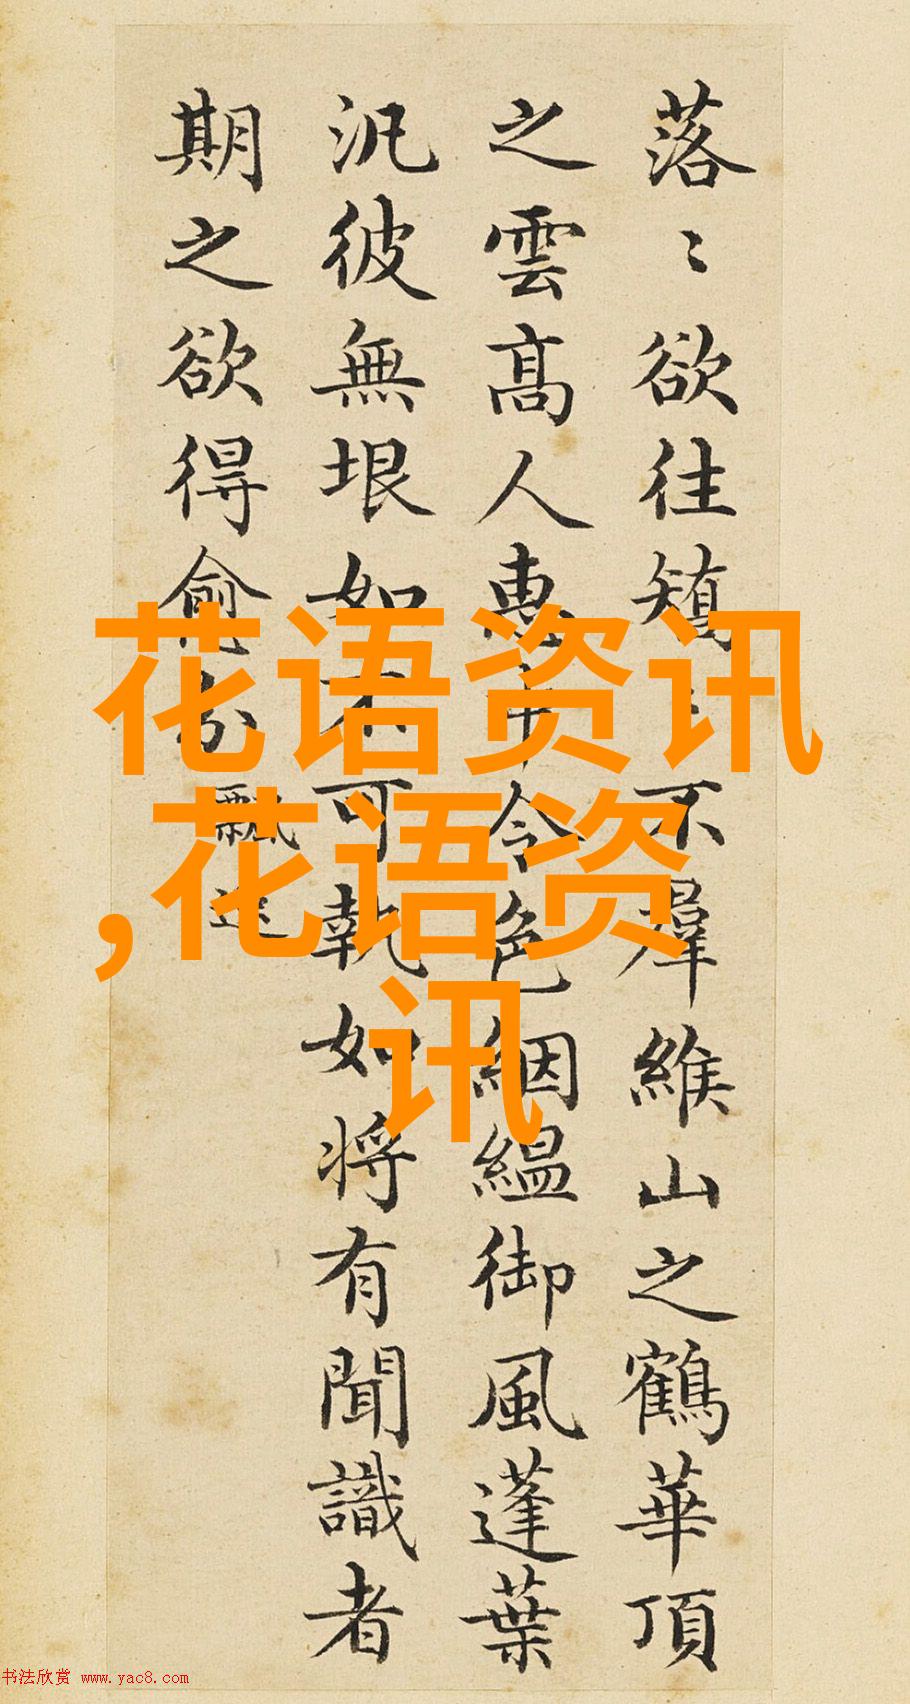 落〻欲往矯〻不羣緱山之鶴華頂
之雲髙人惠中令色絪緼御風蓬葉
汎彼無垠如不可執如将有聞識者
期之欲得愈分
飄逸
花语资讯
,花语资
讯
书法欣赏 www.yac8.com